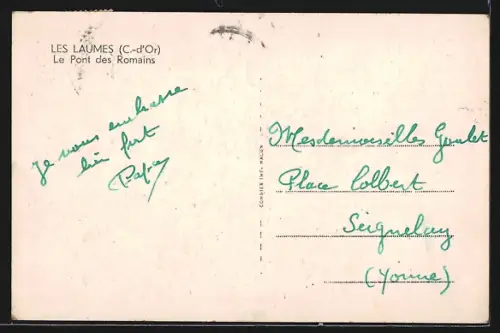 LES LAUMES (C.-d'Or)
Le Pont des Romains
Je vous embrasse
bien fort
Papa
Mesdemoiselles Goulet
Place Colbert
Seignelay
(Yonne)